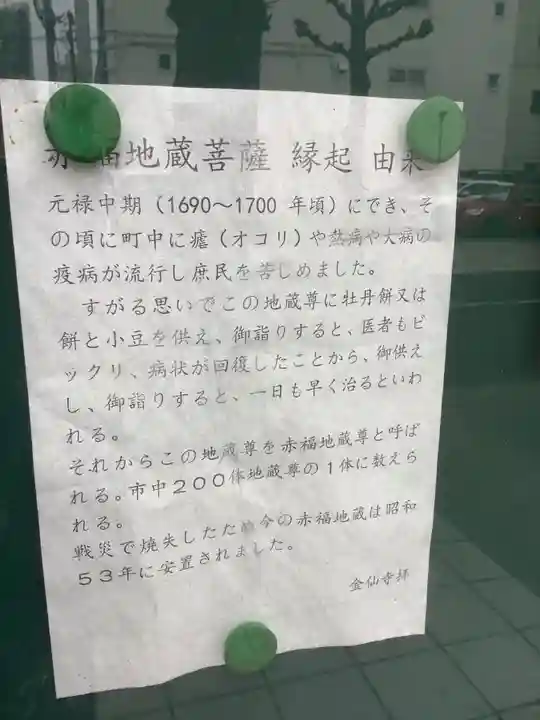 赤福地蔵菩薩 縁起 由来
元禄中期(1690〜1700 年頃)にでき、そ
の頃に町中に瘧(オコリ)や熱病や大病の
疫病が流行し庶民を苦しめました。
すがる思いでこの地蔵尊に牡丹餅又は
餅と小豆を供え、御詣りすると、医者もビ
ックリ、病状が回復したことから、御供え
し、御詣りすると、一日も早く治るといわ
れる。
それからこの地蔵尊を赤福地蔵尊と呼ば
れる。市中200体地蔵尊の1体に数えら
れる。
戦災で焼失したため今の赤福地蔵は昭和
53年に安置されました。
金仙寺拝